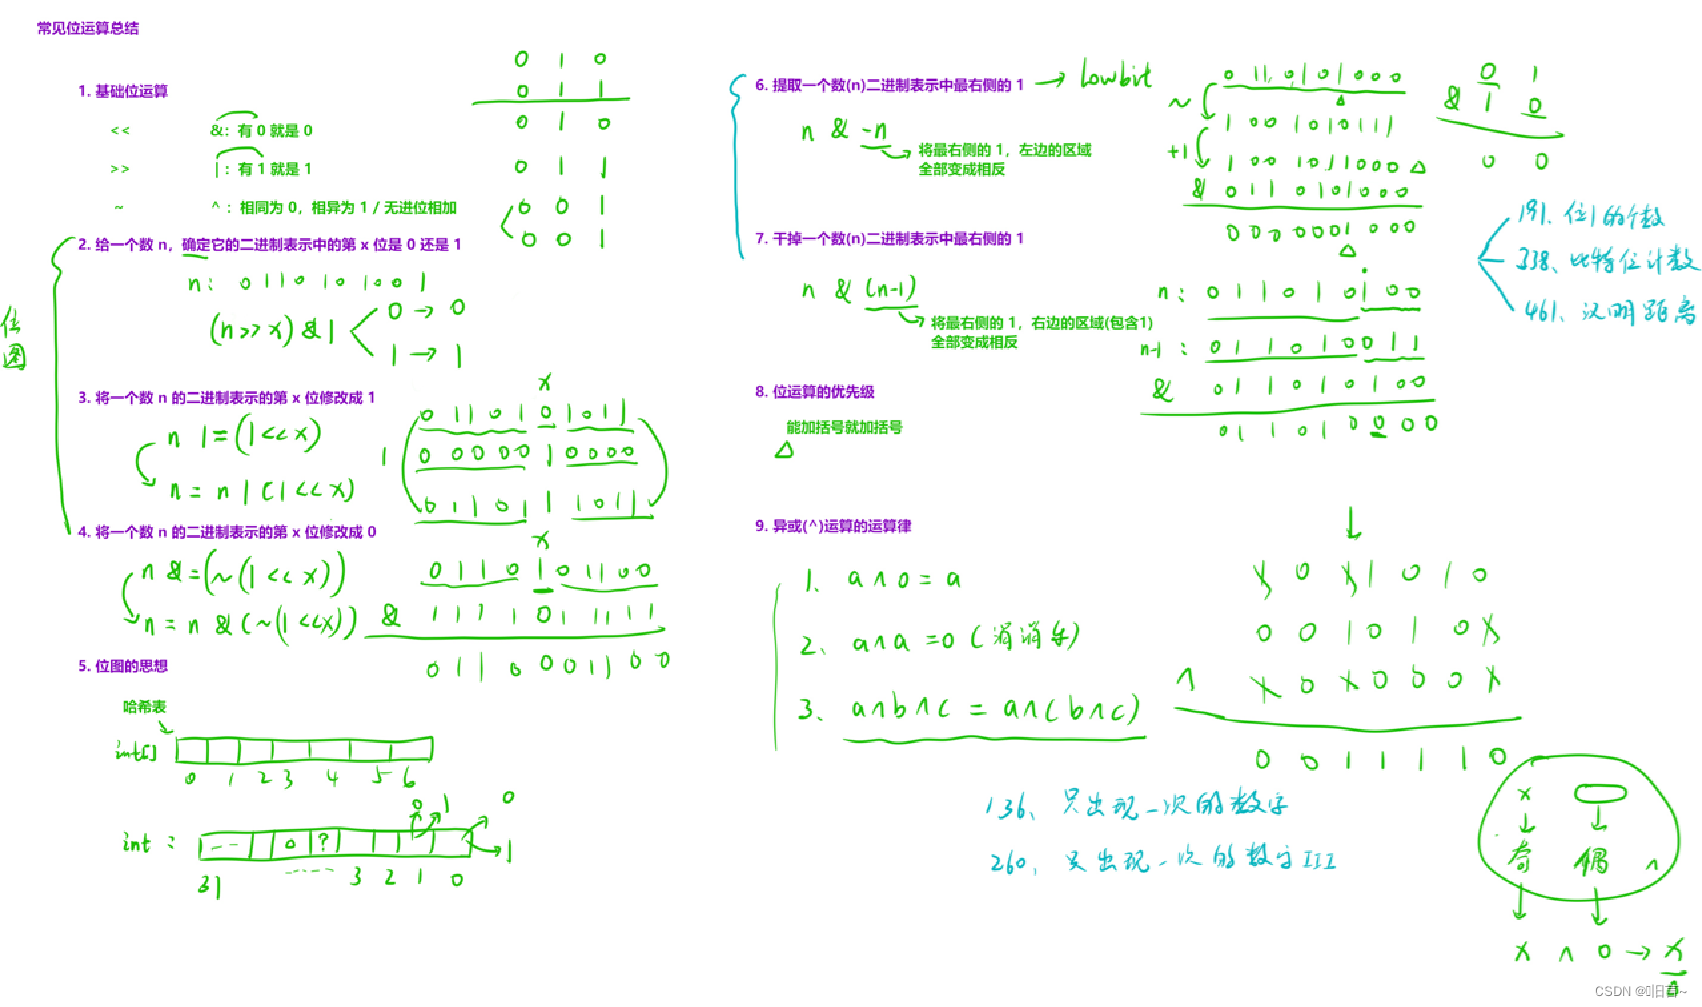 常见位运算总结
1. 基础位运算
<<
&：有 0 就是 0
>>
|：有 1 就是 1
~
^：相同为 0，相异为 1 / 无进位相加
0 1 0
0 1 1
0 1 0
0 1 1
0 0 1
0 0 1
2. 给一个数 n，确定它的二进制表示中的第 x 位是 0 还是 1
n: 0 1 1 0 1 0 1 0 0 1
(n >> x) & 1
0 → 0
1 → 1
位图
3. 将一个数 n 的二进制表示的第 x 位修改成 1
n |= (1 << x)
n = n | (1 << x)
x
0 1 1 0 1 0 1 0 1 1
| 0 0 0 0 0 1 0 0 0 0
0 1 1 0 1 1 1 0 1 1
4. 将一个数 n 的二进制表示的第 x 位修改成 0
n &= (~(1 << x))
n = n & (~(1 << x))
x
0 1 1 0 1 0 1 1 0 0
& 1 1 1 1 0 1 1 1 1
0 1 1 0 0 0 1 1 0 0
5. 位图的思想
哈希表
int[]
0 1 2 3 4 5 6
int :
0 ?
0 1
0
1
31 3 2 1 0
6. 提取一个数(n)二进制表示中最右侧的 1 → lowbit
n & -n
将最右侧的 1，左边的区域
全部变成相反
0 1 1 0 1 0 1 0 0 0
~ 1 0 0 1 0 1 0 1 1 1
+1 1 0 0 1 0 1 1 0 0 0
& 0 1 1 0 1 0 1 0 0 0
0 0 0 0 0 0 1 0 0 0
0 1
& 1 0
0 0
7. 干掉一个数(n)二进制表示中最右侧的 1
n & (n-1)
将最右侧的 1，右边的区域(包含1)
全部变成相反
n : 0 1 1 0 1 0 1 0 0
n-1 : 0 1 1 0 1 0 0 1 1
& 0 1 1 0 1 0 1 0 0
0 1 1 0 1 0 0 0 0
191、位1的个数
338、比特位计数
461、汉明距离
8. 位运算的优先级
能加括号就加括号
9. 异或(^)运算的运算律
1. a ∧ 0 = a
2、a ∧ a = 0 (消消乐)
3、a ∧ b ∧ c = a ∧ (b ∧ c)
1 0 1 1 0 1 0
0 0 1 0 1 0 1
∧ 1 0 1 0 0 0 1
0 0 1 1 1 1 0
136、只出现一次的数字
260、只出现一次的数字 III
x
奇 偶 ∧
x ∧ 0 → x